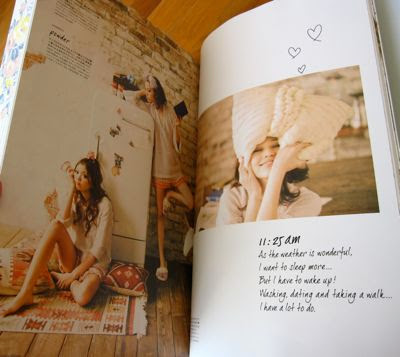 powder
11:25am
As the weather is wonderful,
I want to sleep more...
But I have to wake up!
Washing, dating and taking a walk....
I have a lot to do.